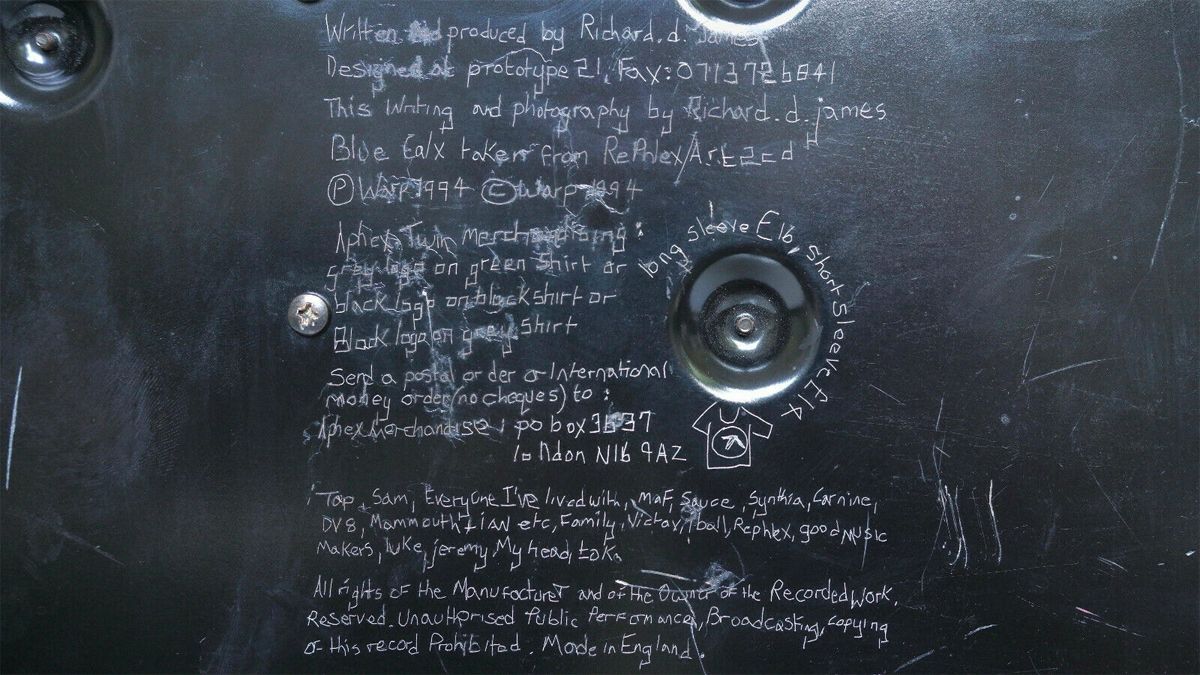 Written and produced by Richard.d.James
Designed at prototype 21, Fax: 0713726841
This Writing and photography by Richard.d.james
Blue Calx taken from Rephlex/Art2cd
Ⓟ Warp 1994 © Warp 1994
Aphex Twin Merchandising:
grey logo on green shirt or
black logo on black shirt or
Black logo on grey shirt
long sleeve £16, short sleeve £14
Send a postal order or International
money order (no cheques) to:
Aphex Merchandise: po box 3637
london N16 9AZ
Tap, Sam, Everyone I've lived with, Maf, Sauce, Synthia, Carnine,
DV8, Mammouth, Lian etc, Family, Victor, Iball, Rephlex, good music
Makers, Luke, jeremy, My head,
All rights of the Manufacturer and of the Owner of the Recorded Work,
Reserved. Unauthorised Public Performance, Broadcasting, copying
of this record Prohibited. Made in England.